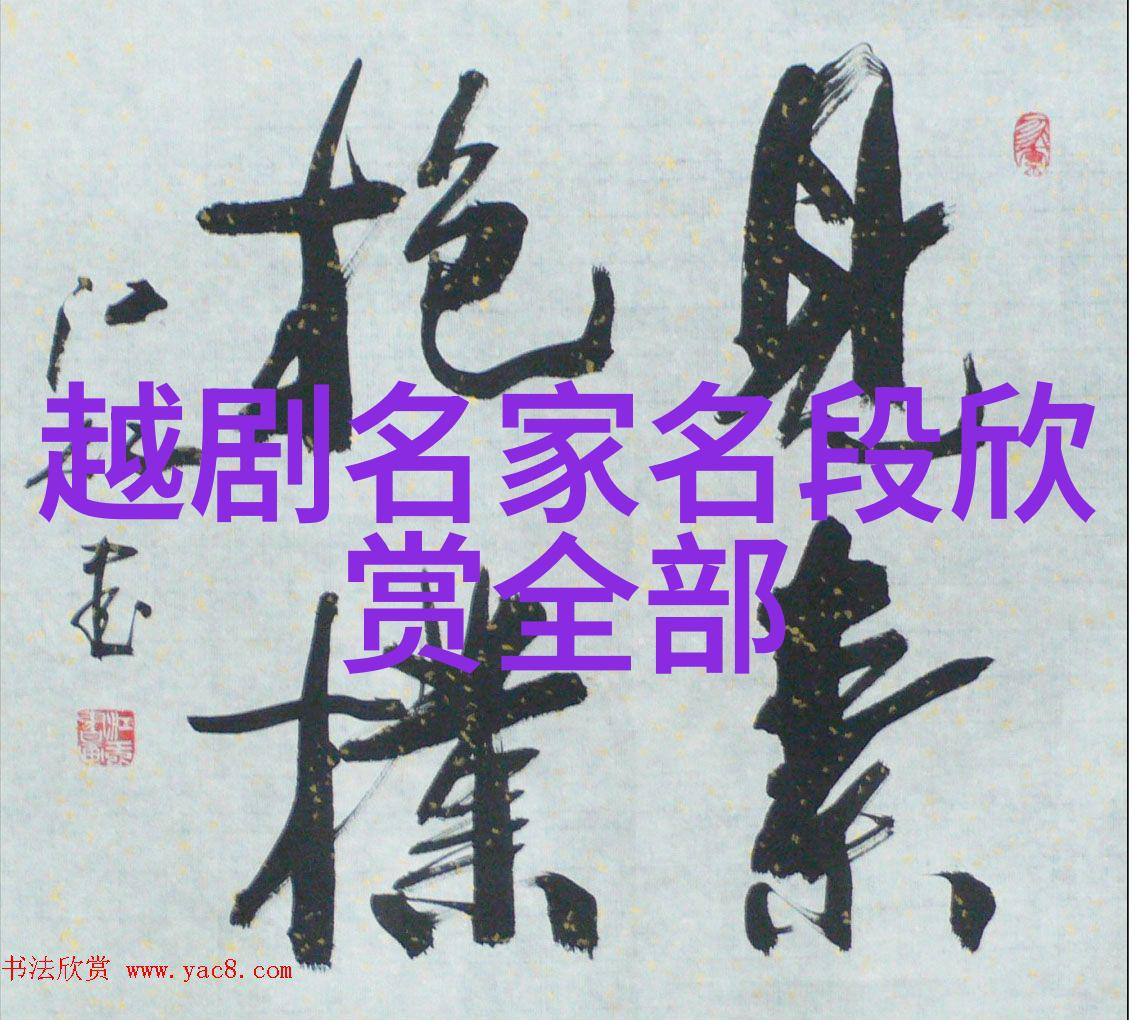 见素
抱朴
越剧名家名段欣
赏全部
书法欣赏 www.yac8.com